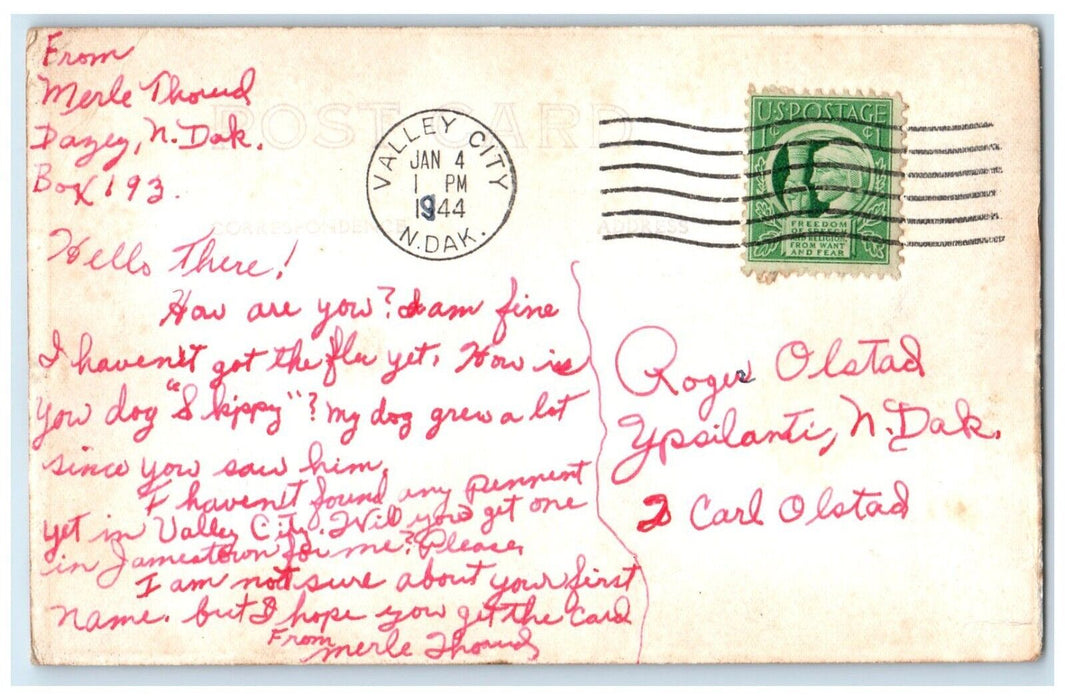 From
Merle Thoud
Dazey, N. Dak.
Box 193.
POST CARD
VALLEY CITY
JAN 4
1 PM
1944
N.DAK.
U.S. POSTAGE
1¢ 1¢
FREEDOM
OF SPEECH
AND RELIGION
FROM WANT
AND FEAR
CORRESPONDENCE
ADDRESS
Hello There!
How are you? I am fine
I haven't got the flu yet. How is
you dog "Skippy"? My dog grew a lot
since you saw him.
I haven't found any pennent
yet in Valley City. Will you get one
in Jamestown for me? Please,
I am not sure about your first
name. but I hope you get the card
From
Merle Thoud
Roger Olstad
Ypsilanti, N. Dak.
Carl Olstad